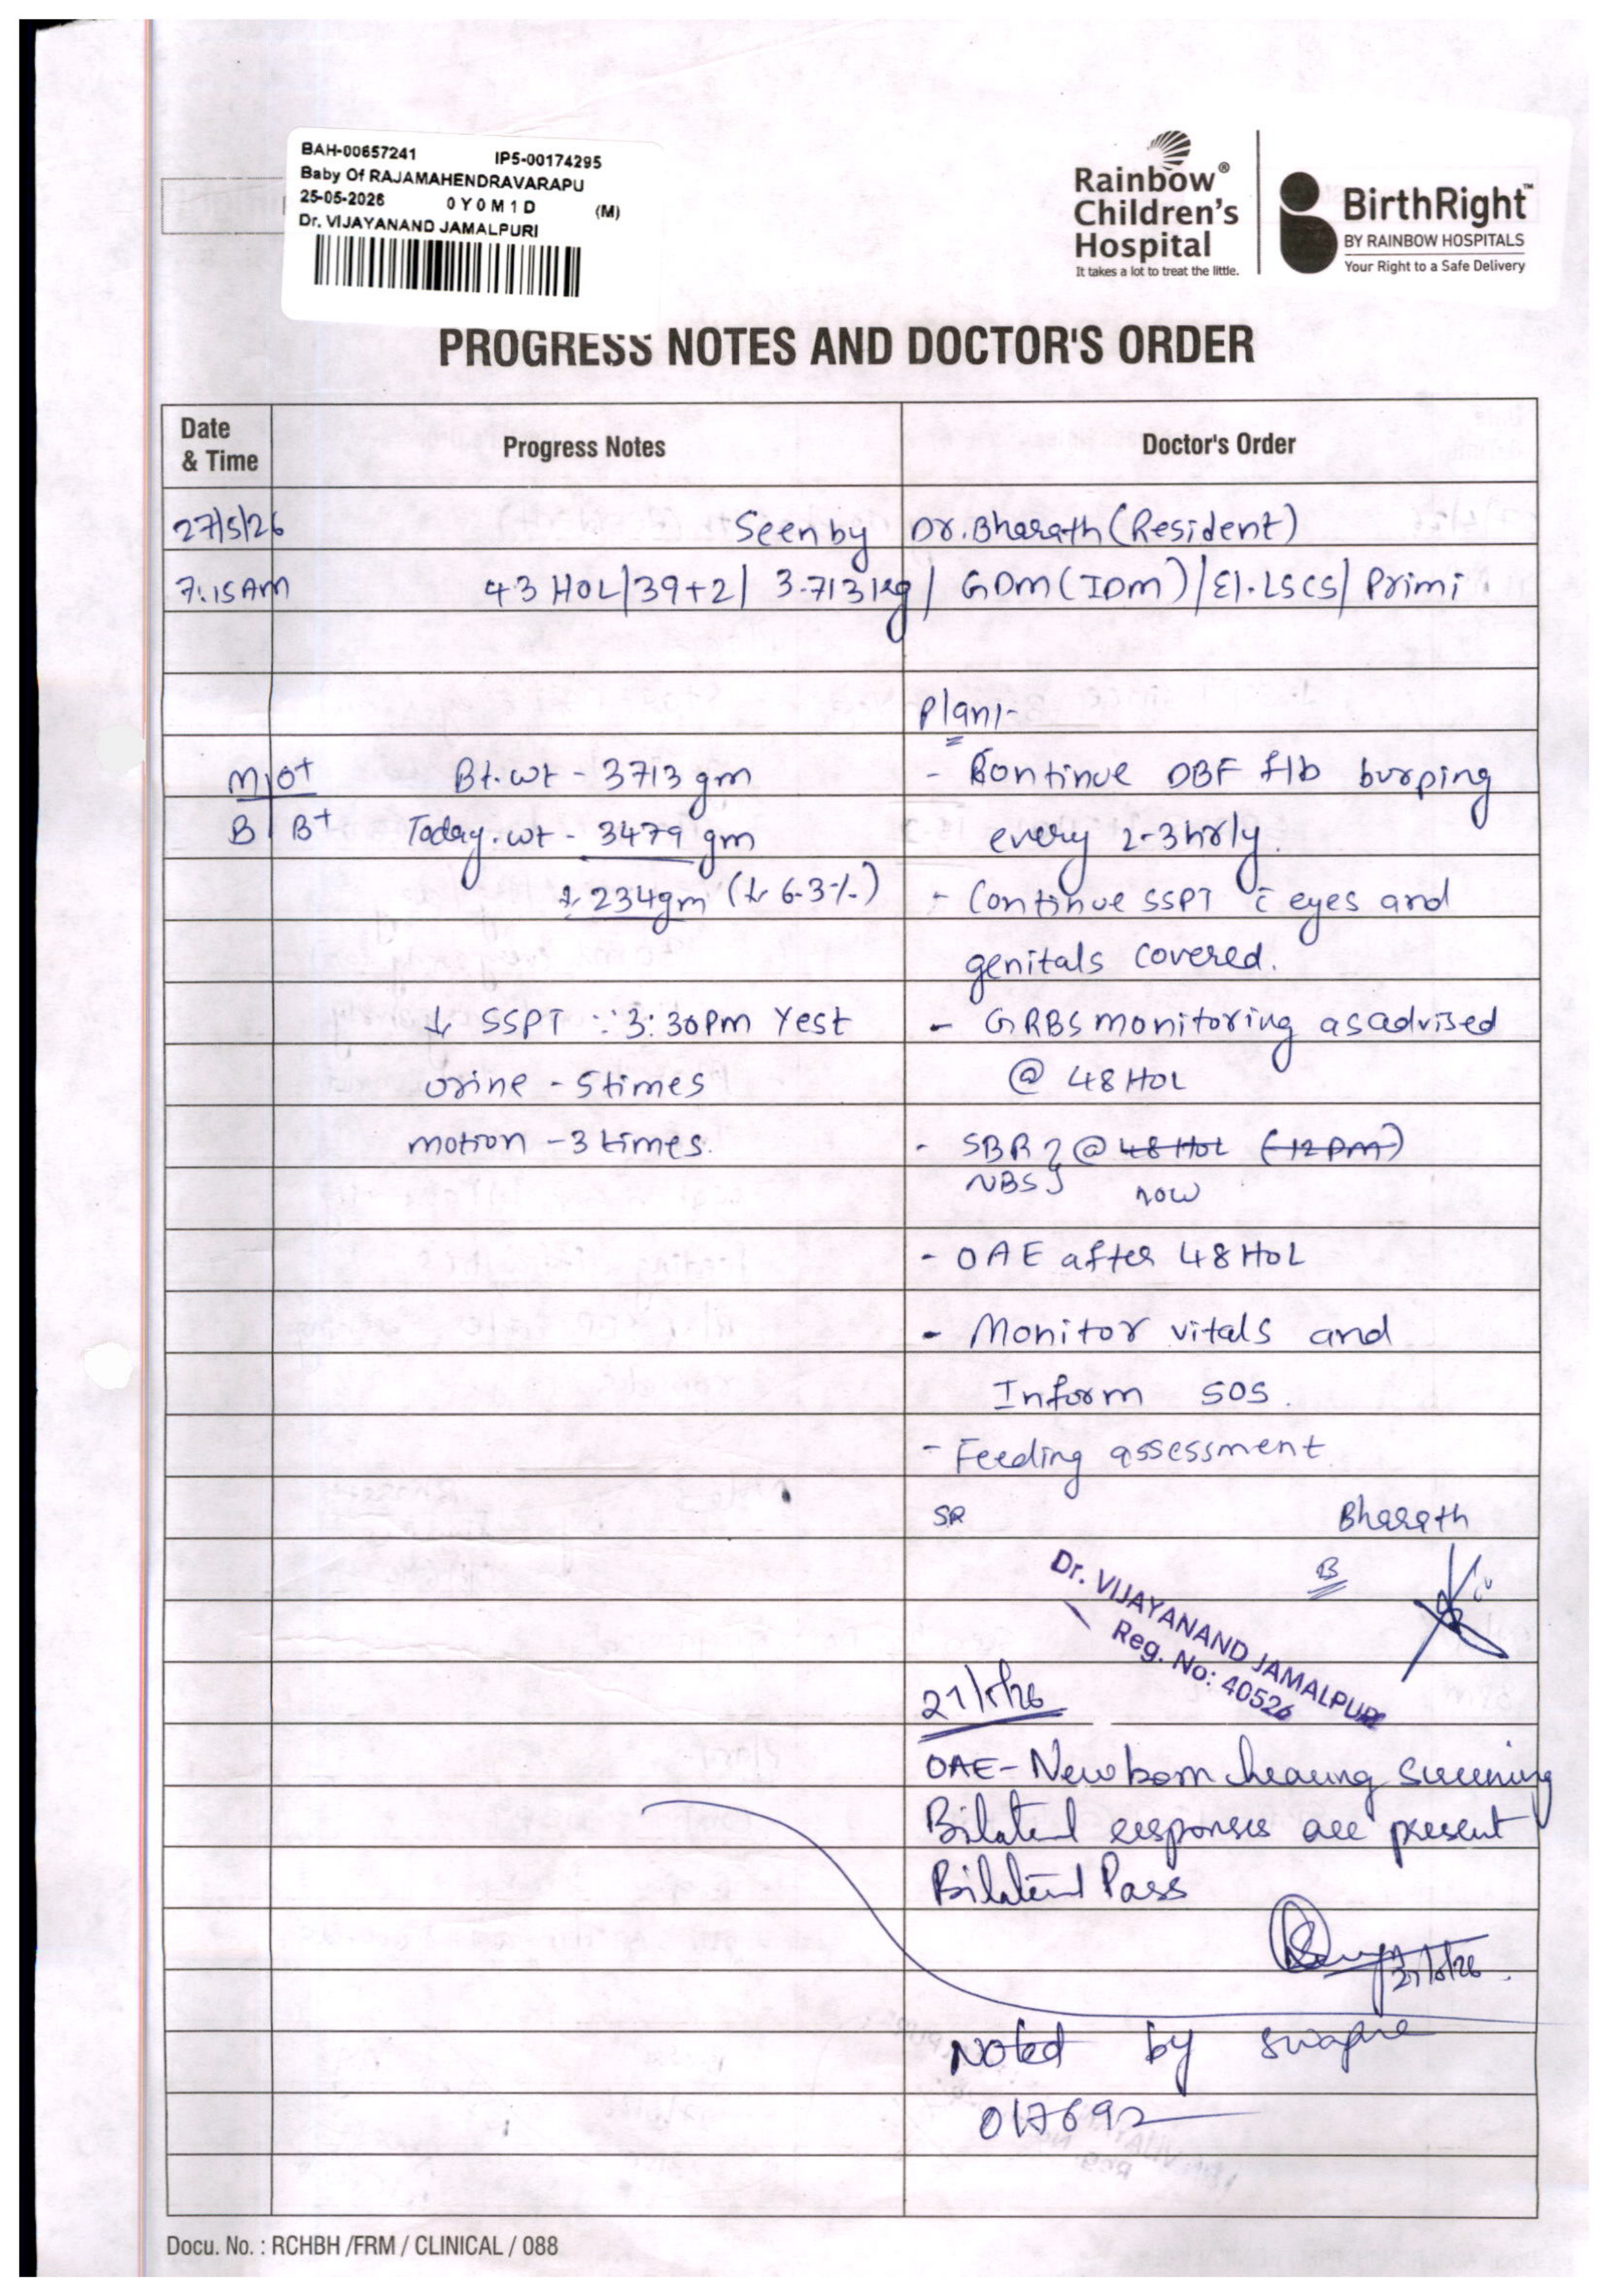 BAH-00657241 IP5-00174295
Baby Of RAJAMAHENDRAVARAPU
25-05-2026 0Y0M1D (M)
Dr. VIJAYANAND JAMALPURI
Rainbow®
Children's
Hospital
It takes a lot to treat the little.
BirthRight™
BY RAINBOW HOSPITALS
Your Right to a Safe Delivery
PROGRESS NOTES AND DOCTOR'S ORDER
Date & Time Progress Notes Doctor's Order
27/5/26 Seen by Dr. Bharath (Resident)
7:15AM 43 HOL/39+2/ 3.713kg/ GDM (IDM)/El.LSCS/ Primi
Plan:-
M O+ Bt.wt - 3713 gm - Continue DBF f/b burping
B B+ Today.wt - 3479 gm every 2-3hrly.
↓ 234gm (↓ 6.3%) - Continue SSPT c̄ eyes and
genitals covered.
↓ SSPT ∵ 3:30PM Yest - GRBS monitoring as advised
urine - 5 times @ 48 HOL
motion - 3 times. - SBR } @ 48 HOL (12 PM)
NBS } now
- OAE after 48 HOL
- Monitor vitals and
Inform SOS.
- Feeding assessment
SR Bharath
B
Dr. VIJAYANAND JAMALPURI
Reg. No: 40526
27/5/26
OAE - Newborn hearing screening
Bilateral responses are present
Bilateral Pass
27/5/26.
Noted by Swapna
017692
Docu. No. : RCHBH /FRM / CLINICAL / 088